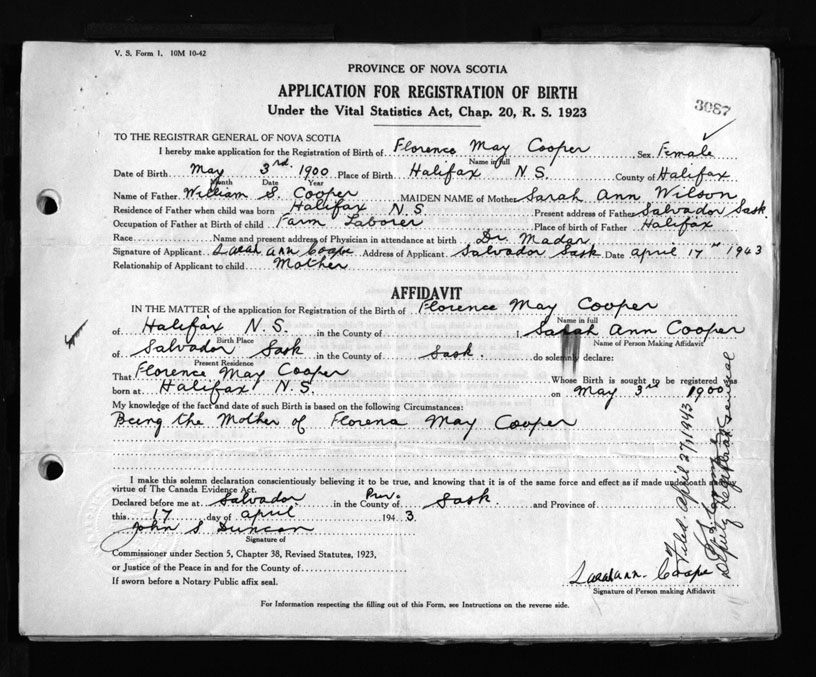 V. S. Form 1. 10M 10-42
PROVINCE OF NOVA SCOTIA
APPLICATION FOR REGISTRATION OF BIRTH
Under the Vital Statistics Act, Chap. 20, R. S. 1923
3087
TO THE REGISTRAR GENERAL OF NOVA SCOTIA
I hereby make application for the Registration of Birth of Florence May Cooper Sex Female
Name in full
Date of Birth May 3rd 1900 Place of Birth Halifax N.S. County of Halifax
Month Date Year
Name of Father William S. Cooper MAIDEN NAME of Mother Sarah Ann Wilson
Residence of Father when child was born Halifax N.S. Present address of Father Salvador Sask.
Occupation of Father at Birth of child Farm Laborer Place of birth of Father Halifax
Race Name and present address of Physician in attendance at birth Dr. Mader
Signature of Applicant Sarah ann Coope Address of Applicant Salvador Sask. Date april 17th 1943
Relationship of Applicant to child Mother
AFFIDAVIT
IN THE MATTER of the application for Registration of the Birth of Florence May Cooper
Name in full
of Halifax N.S. in the County of I Sarah Ann Cooper
Birth Place Name of Person Making Affidavit
of Salvador Sask in the County of Sask. do solemnly declare:
Present Residence
That Florence May Cooper Whose Birth is sought to be registered was
born at Halifax N.S. on May 3rd 1900
My knowledge of the fact and date of such Birth is based on the following Circumstances:
Being the Mother of Florena May Cooper
I make this solemn declaration conscientiously believing it to be true, and knowing that it is of the same force and effect as if made under oath and by
virtue of The Canada Evidence Act.
Declared before me at Salvador in the County of Prov. Sask. and Province of
this 17 day of april 1943.
John S Duncan
Signature of
Commissioner under Section 5, Chapter 38, Revised Statutes, 1923,
or Justice of the Peace in and for the County of
If sworn before a Notary Public affix seal.
Sarah ann. Coope
Signature of Person making Affidavit
For Information respecting the filling out of this Form, see Instructions on the reverse side.
Filed. April 27, 1943
Deputy Registrar General